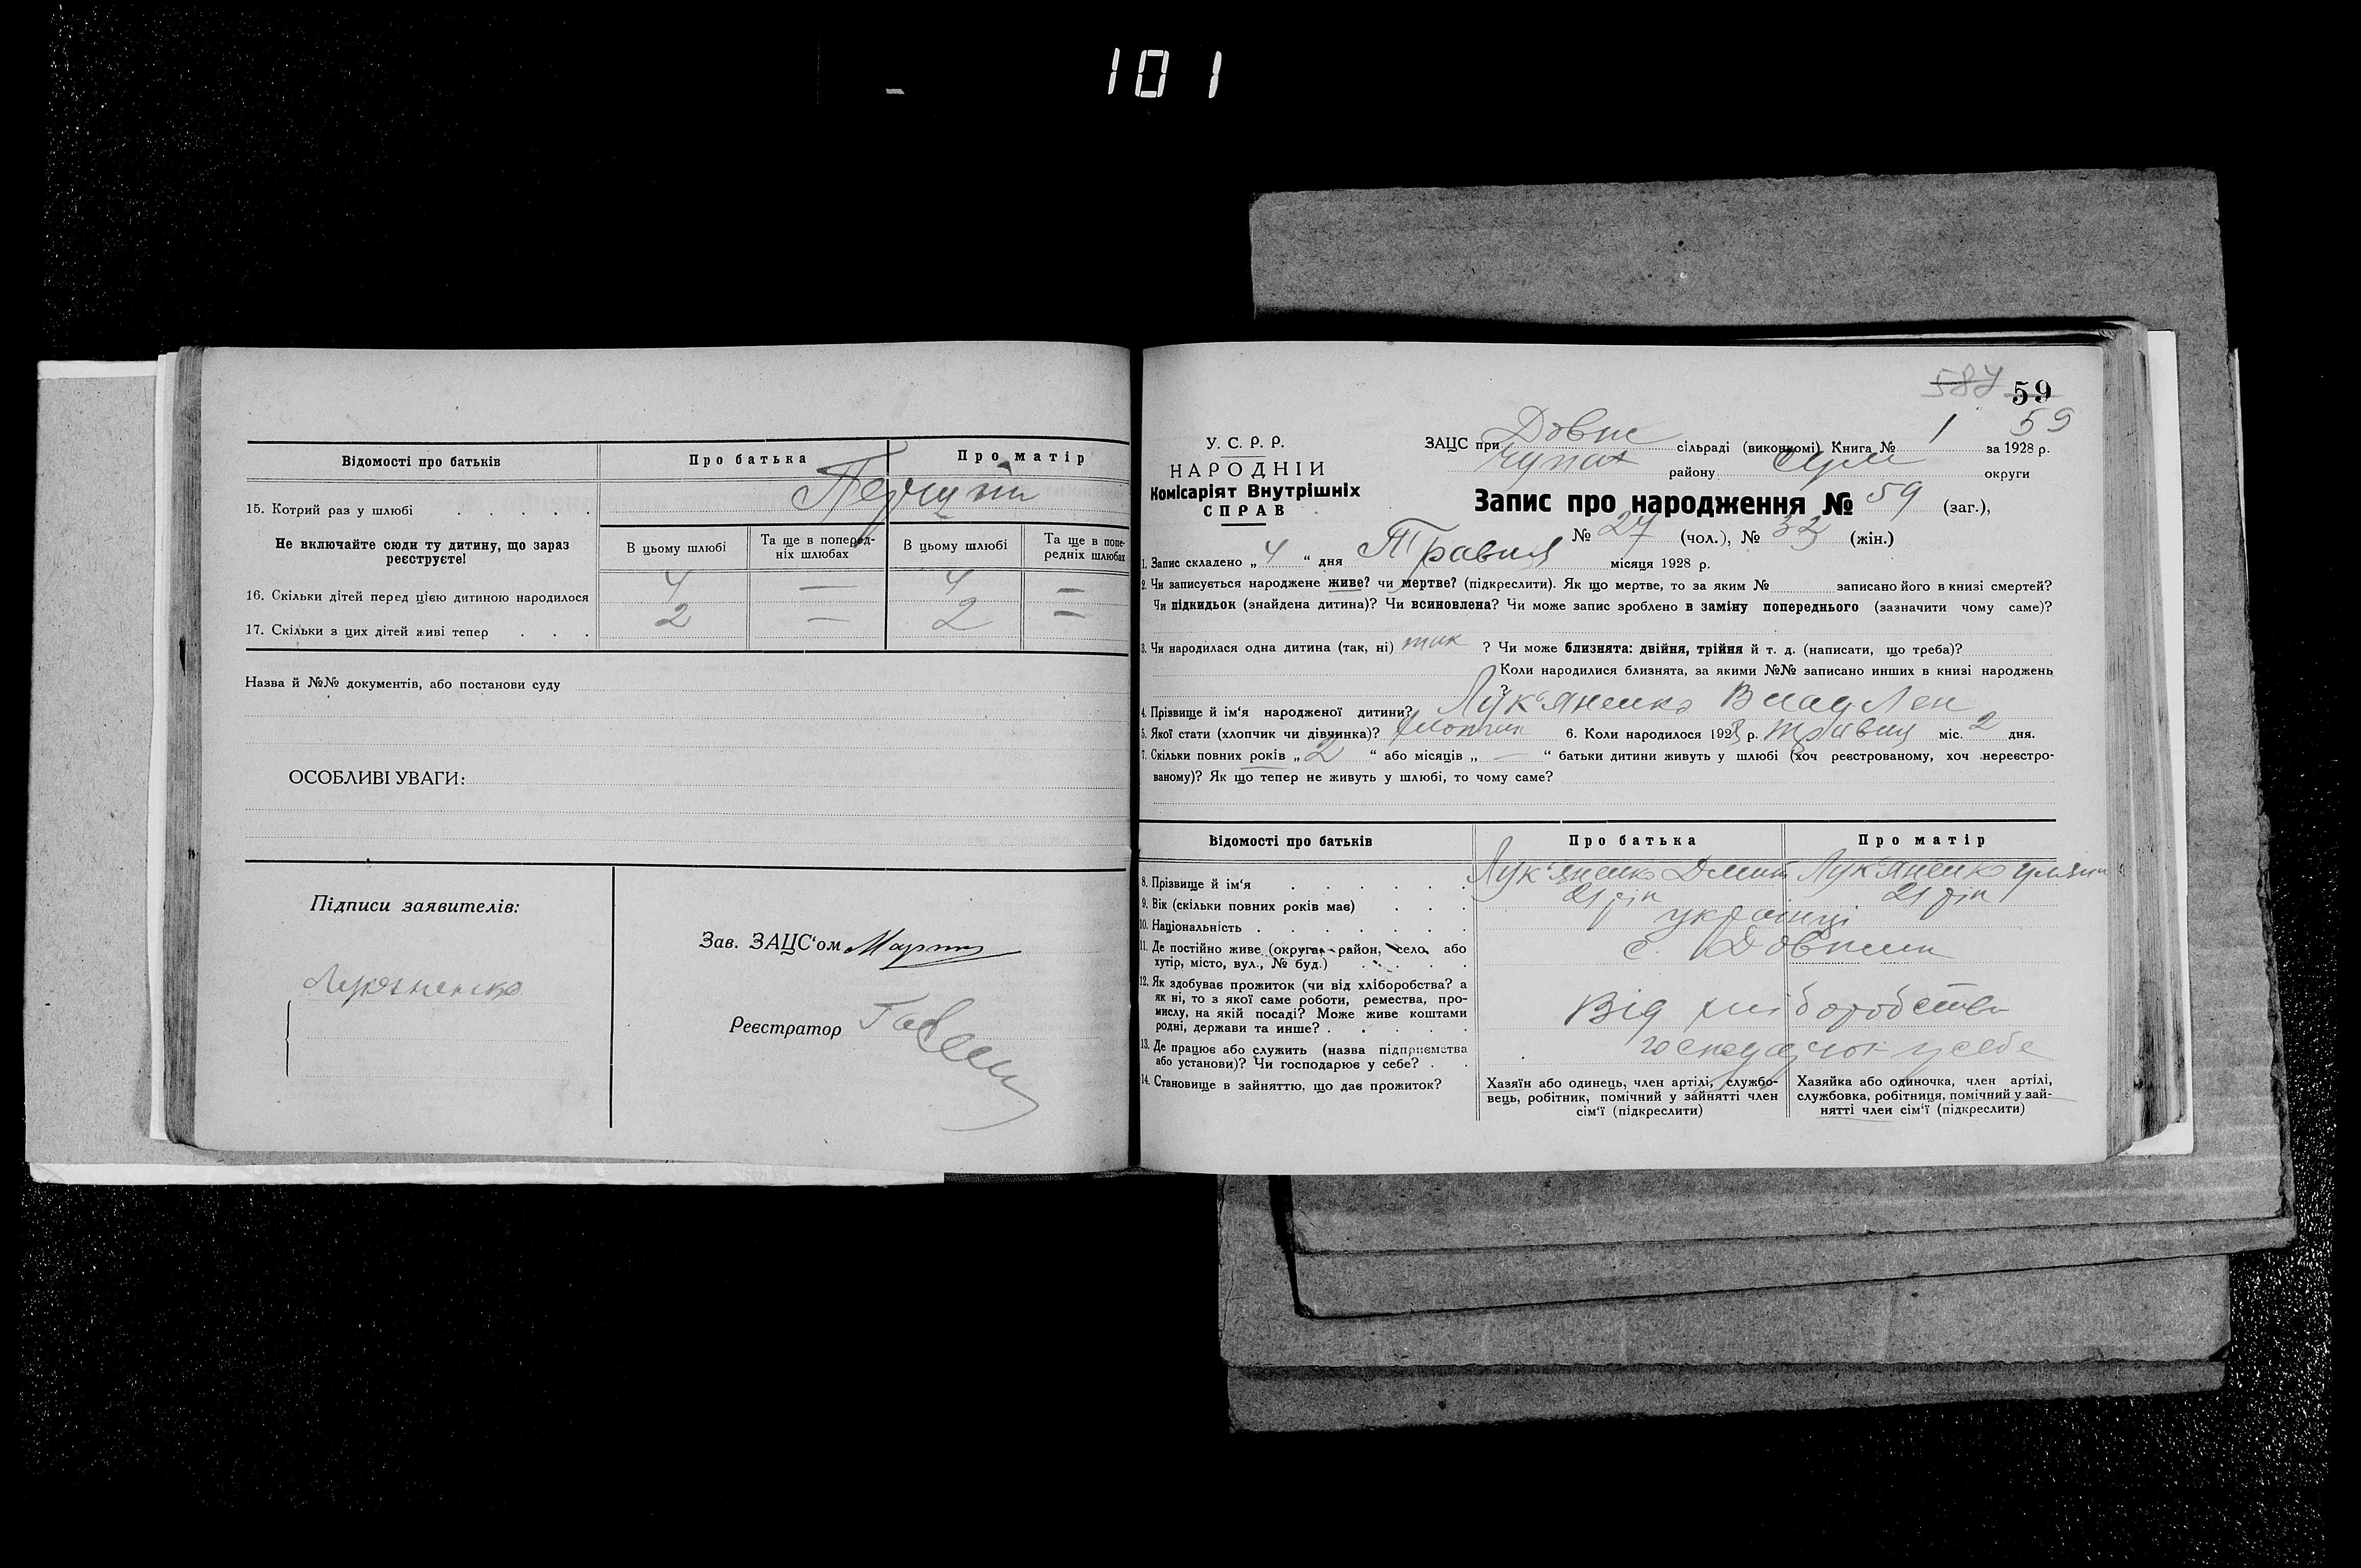 101
Відомості про батьків
Про батька
Про матір
15. Котрий раз у шлюбі . . . . .
Не включайте сюди ту дитину, що зараз
реєструєте!
В цьому шлюбі
Та ще в поперед-
ніх шлюбах
В цьому шлюбі
Та ще в попе-
редніх шлюбах
16. Скільки дітей перед цією дитиною народилося 4 — 4 —
17. Скільки з цих дітей живі тепер . . . 2 — 2 —
Назва й №№ документів, або постанови суду
ОСОБЛИВІ УВАГИ:
Підписи заявителів:
Зав. ЗАЦС‘ом
Реєстратор
587 59
59
У. С. Р. Р.
НАРОДНІЙ
Комісаріят Внутрішніх
СПРАВ
ЗАЦС при Довж сільраді (виконкомі) Книга № 1 за 1928 р.
району округи
Запис про народження № 59 (заг.),
№ 27 (чол.), № 32 (жін.)
1. Запис складено „ 4 “ дня Травня місяця 1928 р.
2. Чи записується народжене живе? чи мертве? (підкреслити). Як що мертве, то за яким № записано його в книзі смертей?
Чи підкидьок (знайдена дитина)? Чи всиновлена? Чи може запис зроблено в заміну попереднього (зазначити чому саме)?
3. Чи народилася одна дитина (так, ні) так ? Чи може близнята: двійня, трійня й т. д. (написати, що треба)?
Коли народилися близнята, за якими №№ записано инших в книзі народжень
?
4. Прізвище й ім‘я народженої дитини? Лук‘яненко ВладЛен
5. Якої стати (хлопчик чи дівчинка)? хлопчик 6. Коли народилося 1928 р. травня міс. 2 дня.
7. Скільки повних років „ 2 “ або місяців „ — “ батьки дитини живуть у шлюбі (хоч реєстрованому, хоч нереєстро-
ваному)? Як що тепер не живуть у шлюбі, то чому саме?
Відомості про батьків
Про батька
Про матір
8. Прізвище й ім‘я . . . . . . Лук‘яненко Дмит Лук‘яненко
9. Вік (скільки повних років має) . . . 21 рік 21 рік
10. Національність . . . . . . . українці
11. Де постійно живе (округа, район, село, або
хутір, місто, вул., № буд.) . . . . с. Довжик
12. Як здобуває прожиток (чи від хліборобства? а
як ні, то з якої саме роботи, ремества, про-
мислу, на якій посаді? Може живе коштами
родні, держави та инше? . . . . . Від хліборобства
13. Де працює або служить (назва підприємства
або установи)? Чи господарює у себе? . . господарює у себе
14. Становище в зайняттю, що дає прожиток?
Хазяїн або одинець, член артілі, службо-
вець, робітник, помічний у зайнятті член
сім‘ї (підкреслити)
Хазяйка або одиночка, член артілі,
службовка, робітниця, помічний у зай-
нятті член сім‘ї (підкреслити)